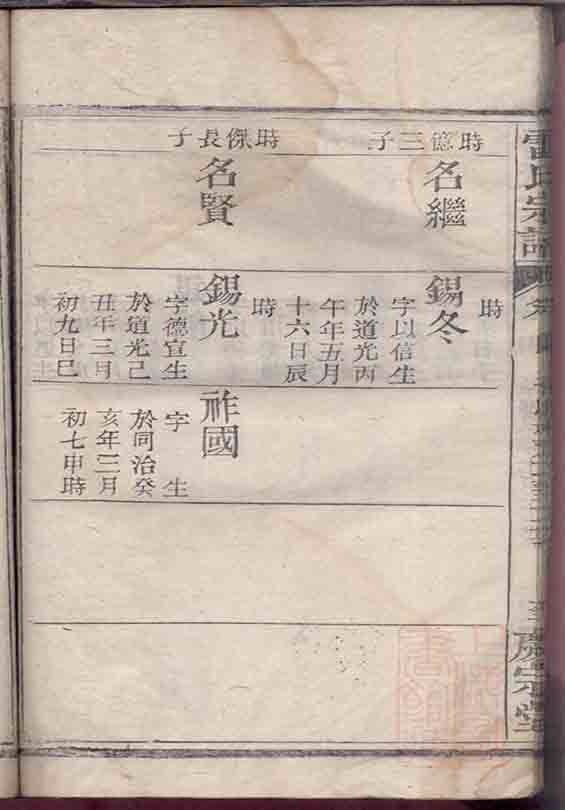 雷氏宗譜
時億三子
名繼
錫冬
字以信生
於道光丙
午年五月
十六日辰
時
時傑長子
名賢
錫光
字德宣生
於道光己
丑年三月
初九日巳
時
祚國
字 生
於同治癸
亥年三月
初七申時